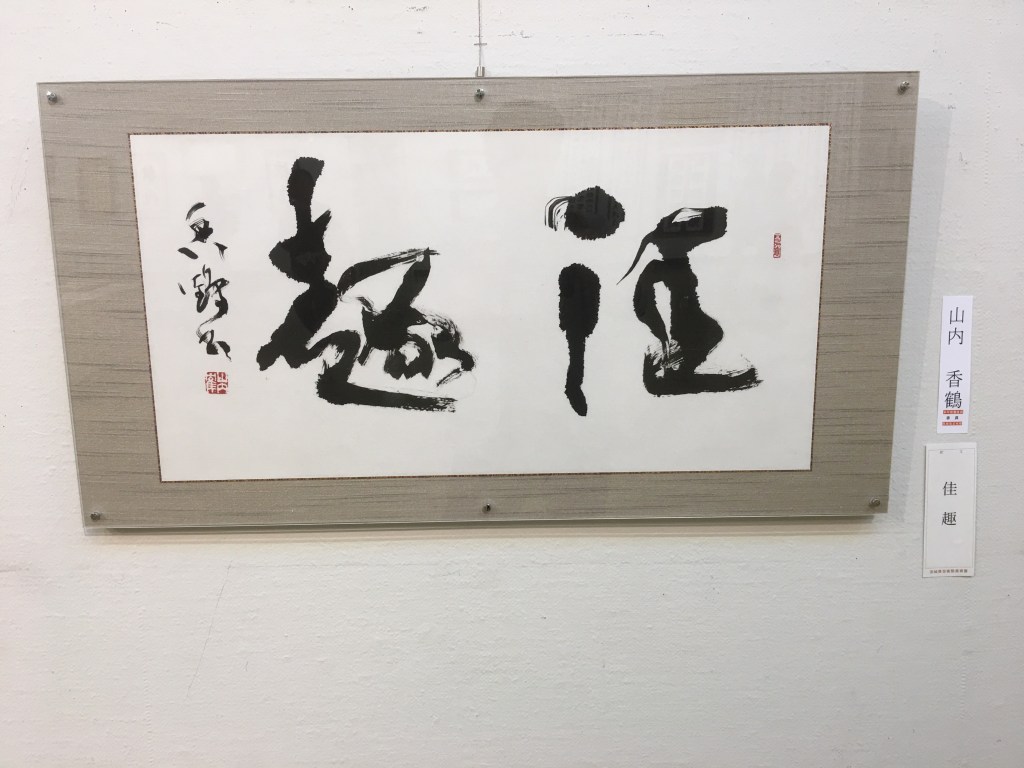 佳趣
香鶴書
山内 香鶴
佳趣